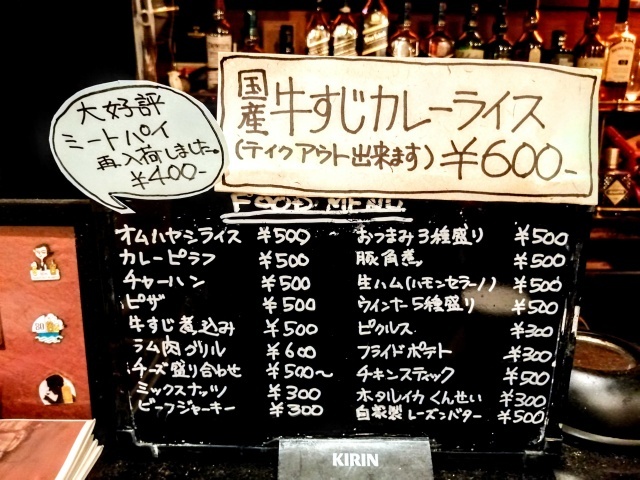 大好評
ミートパイ
再入荷しました。
¥400-
国産牛すじカレーライス
(テイクアウト出来ます) ¥600-
FOOD MENU
オムハヤシライス ¥500 ~
カレーピラフ ¥500
チャーハン ¥500
ピザ ¥500
牛すじ煮込み ¥500
ラム肉グリル ¥600
チーズ盛り合わせ ¥500~
ミックスナッツ ¥300
ビーフジャーキー ¥300
おつまみ3種盛り ¥500
豚角煮 ¥500
生ハム(ハモンセラーノ) ¥500
ウインナー5種盛り ¥500
ピクルス ¥300
フライドポテト ¥300
チキンスティック ¥500
ホタルイカくんせい ¥300
自家製レーズンバター ¥500
KIRIN